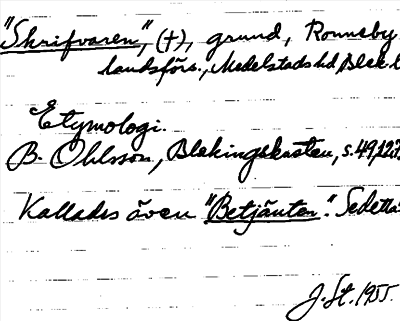 "Skrifvaren", (†), grund, Ronneby
landsförs., Medelstads hd, Blek.l
Etymologi.
B. Ohlsson, Blekingekusten, s. 49, 123
Kallades även "Betjänten". Se detta
J. St. 1955.